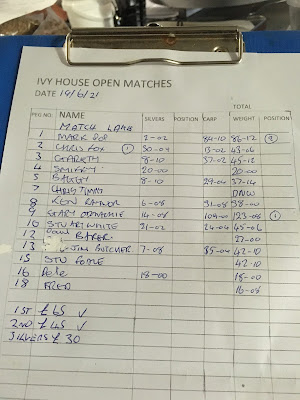 IVY HOUSE OPEN MATCHES
DATE 19/6/21
TOTAL
PEG NO. NAME SILVERS POSITION CARP WEIGHT POSITION
MATCH LAKE
1 MARK POP 2-02 84-10 86-12 2
2 CHRIS FOX 1 30-04 13-02 43-06
3 GEARETH 8-10 37-02 45-12
4 SMILEY 20-00 20-00
5 BAGGY 8-10 29-04 37-14
7 CHRIS DNW
8 KEN RAYNER 6-08 31-08 38-00
9 GARY 14-08 109-00 123-08 1
10 STUART WHITE 21-02 24-04 45-06
12 PAUL BAKER 27-00
13 JIM BUTCHER 7-08 35-04 42-10
15 STU FOALE 42-10
16 Pete 18-00 18-00
18 FRED 16-08
1ST £65 ✓
2ND £45 ✓
SILVERS £30